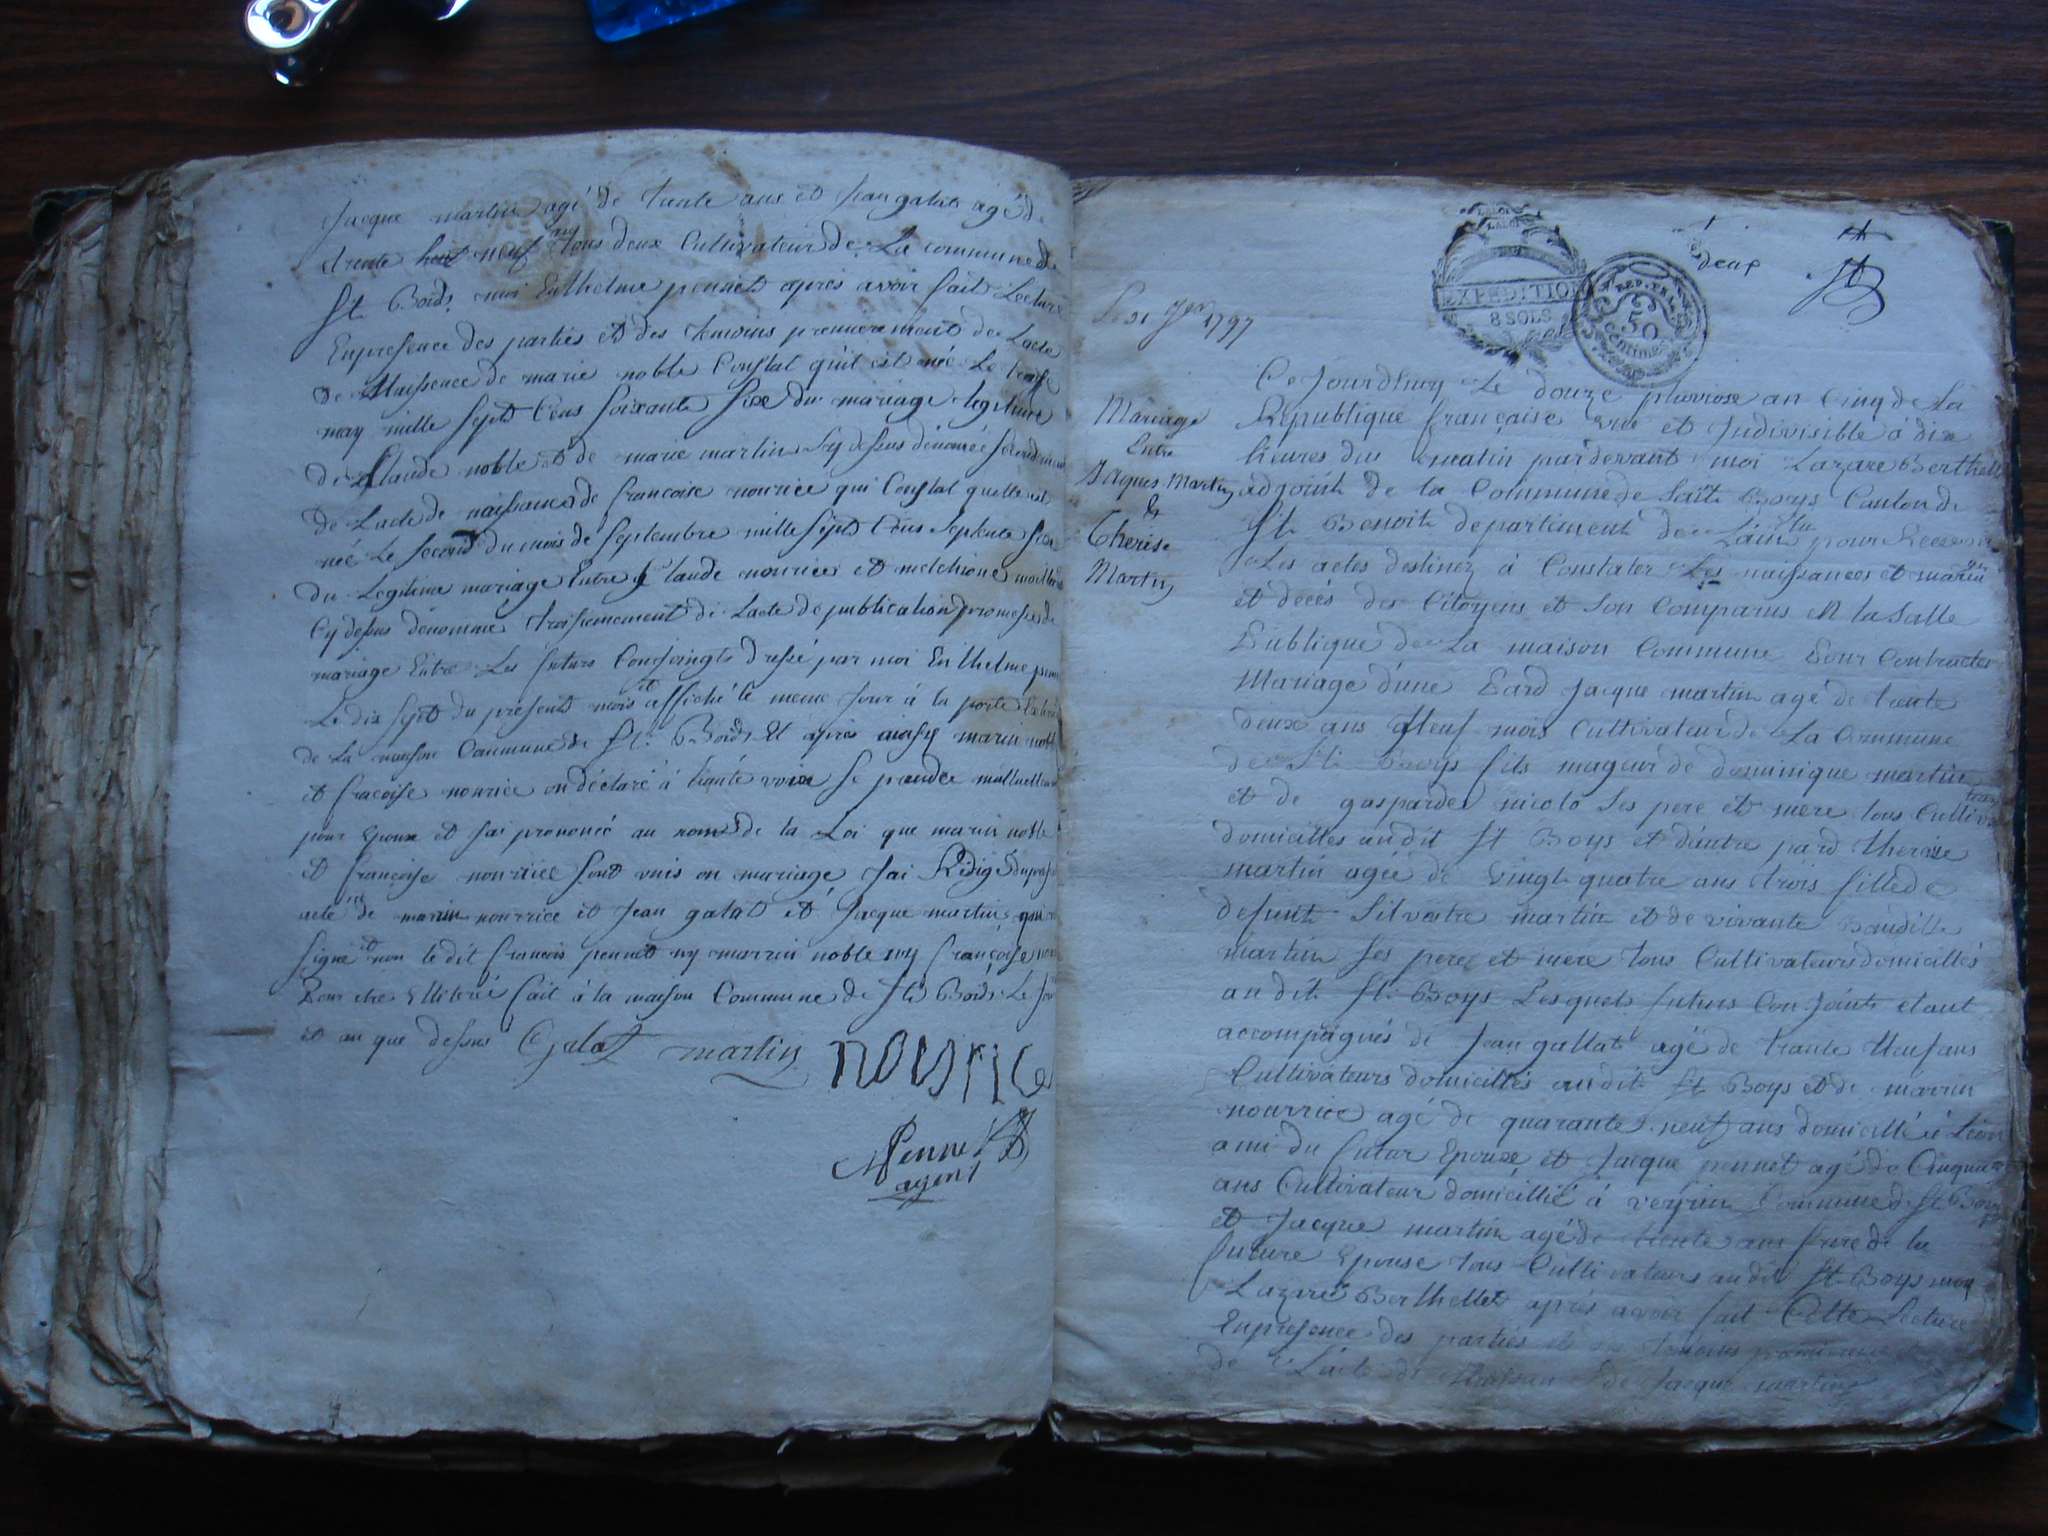 Jacque martin agé de trente ans et jean galat agé de
trente huit neuf ans tous deux Cultivateur de La commune de
St. Boids moi Enthelme pennet apres avoir fait Lecture
Enpresence des parties et des temoins premierement de Lacte
de Naissence de marie noble Constat quit est née Le treise
may mille sept Cens soixante Sixe du mariage legitime
de Claude noble et de marie martin sy dessus dénomée secondement
de Lacte de naissance de francoise nourice qui Constat quelle est
née Le second du mois de septembre mille sept Cens septente six
du Legitime mariage Entre Claude nourice et melchione
Cy dessus dénommé troisiemement de Lacte de publication promesse de
mariage Entre Les futurs Conjoingts dressé par moi Enthelme
Le dix sept du present mois et affiché le meme jour á la porte
de La maison Commune de St. Boids Et apres aussy marin noble
et fracoise nourice on déclaré á haute voix se prendre mutuellement
pour Epoux et jai prononcé au nom de la Loi que marin noble
et francoise nourice sont unis on mariage jai Rédigé
acte de marin nourrice et Jean galat et jacque martin qui
signé et non le dit francois pennet ny marrin noble ny francoise
Pour etre Illiteré fait á la maison Commune de St. Boids Le jour
et an que dessus Galat martin nourice
Pennet
agent
deux
LA LOI
EXPEDITION
8 SOLS
REP. FRA.
50
Centimes
Le 31 Jer 1797
Mariage
Entre
Jaques Martin
&
Therese
Martin
Ce Jourdhuy Le douze pluviose an Cinq de La
Republique francaise une et Judivisible á dix
heures du matin pardevant moi Lazare Berthellet
adjoint de la Commune de Saint Boys Canton de
St. Benoit departiment de Lain pour Recevoir
Les actes destinez á Constater Les naissances et mariages
et décés des Citoyens et son Comparus en la salle
Publique de La maison Commune Pour Contracter
Mariage d'une Pard Jacque martin agé de trente
deux ans Neuf mois Cultivateur de La Commune
de St. Boys fils mageur de dominique martin
et de gasparde nicolo ses pere et mere tous Cultivateurs
domicilles audit St Boys et d'autre pard therese
martin agée de vingt quatre ans trois fille de
defunt Silvestre martin et de vivante
martin ses pere et mere tous Cultivateurs domicillés
au dit St. Boys Lesquels futurs Conjoints etant
accompagnés de Jean gallat agé de trante Neuf ans
Cultivateurs domicilliés audit St Boys et de marrin
nourrice agé de quarante neuf ans domicillié á
ami du futur Epoux et Jacque pennet agé de Cinquante
ans Cultivateur domicillié á veyrin Commune de St. Boys
et Jacque martin agé de trente ans frere de la
future Epouse tous Cultivateurs au dit St. Boys moi
Lazare Berthellet apres avoir fait Cette Lecture
Enpresence des parties et des temoins
de Lacte de Naissance de Jacque martin